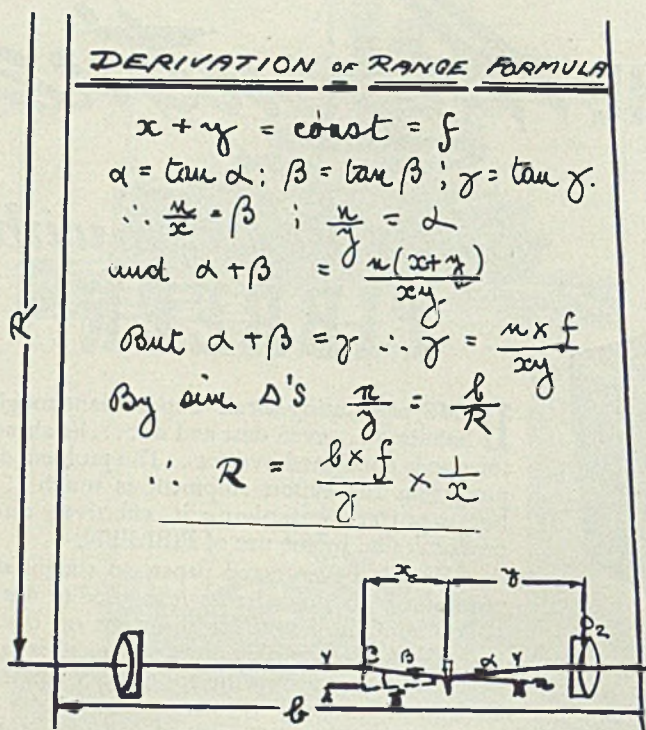 DERIVATION OF RANGE FORMULA
x + y = const = f
α = tan α ; β = tan β ; γ = tan γ.
∴ n/x = β ; n/y = α
and α + β = n(x+y)/xy
But α + β = γ ∴ γ = n × f/xy
By sim Δ'S n/y = b/R
∴ R = b × f/γ × 1/x
R
x
y
γ
β
α
γ
n
b